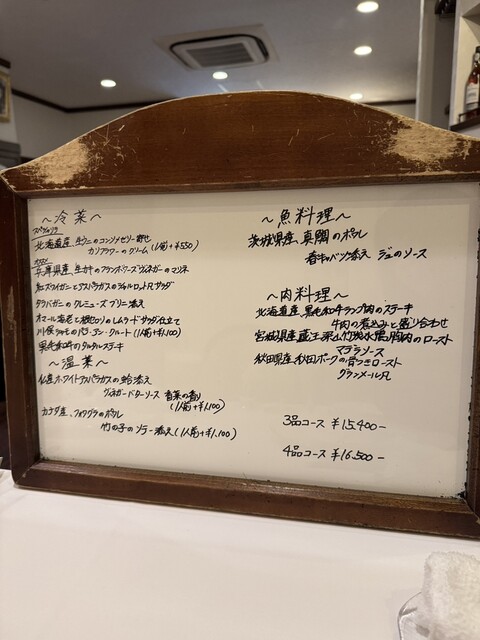 ～冷菜～
スペシャリテ
北海道産 生ウニのコンソメゼリー寄せ
カリフラワーのクリーム(1名前+¥550)
兵庫県産、生カキのフランボワーズヴィネガーのマリネ
紅ズワイガニとアスパラガスのシャルロット風サラダ
タラバガニのクレミューズ ブリニ添え
オマール海老と根セロリのレムラード サラダ仕立て
川俣シャモのパテ・アン・クルート(1人前+¥1,100)
黒毛和牛のタルタルステーキ
～温菜～
仏産ホワイトアスパラガスの蛤添え
ヴィネガーバターソース 香菜の香り
(1人前+¥1,100)
カナダ産、フォワグラのポワレ
竹の子のソテー添え(1人前+¥1,100)
～魚料理～
茨城県産 真鯛のポワレ
春キャベツ添え ジュのソース
～肉料理～
北海道産 黒毛和牛ランプ肉のステーキ
牛肉の煮込みと盛り合わせ
宮城県産 蔵王深山竹炭水鴨胸肉のロースト
マデラソース
秋田県産 秋田ポークの骨つきロースト
グランメール風
3品コース ¥15,400-
4品コース ¥16,500-